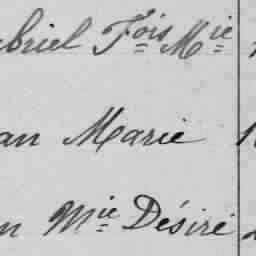 briel Fois Mie
an Marie
n Mie Désiré